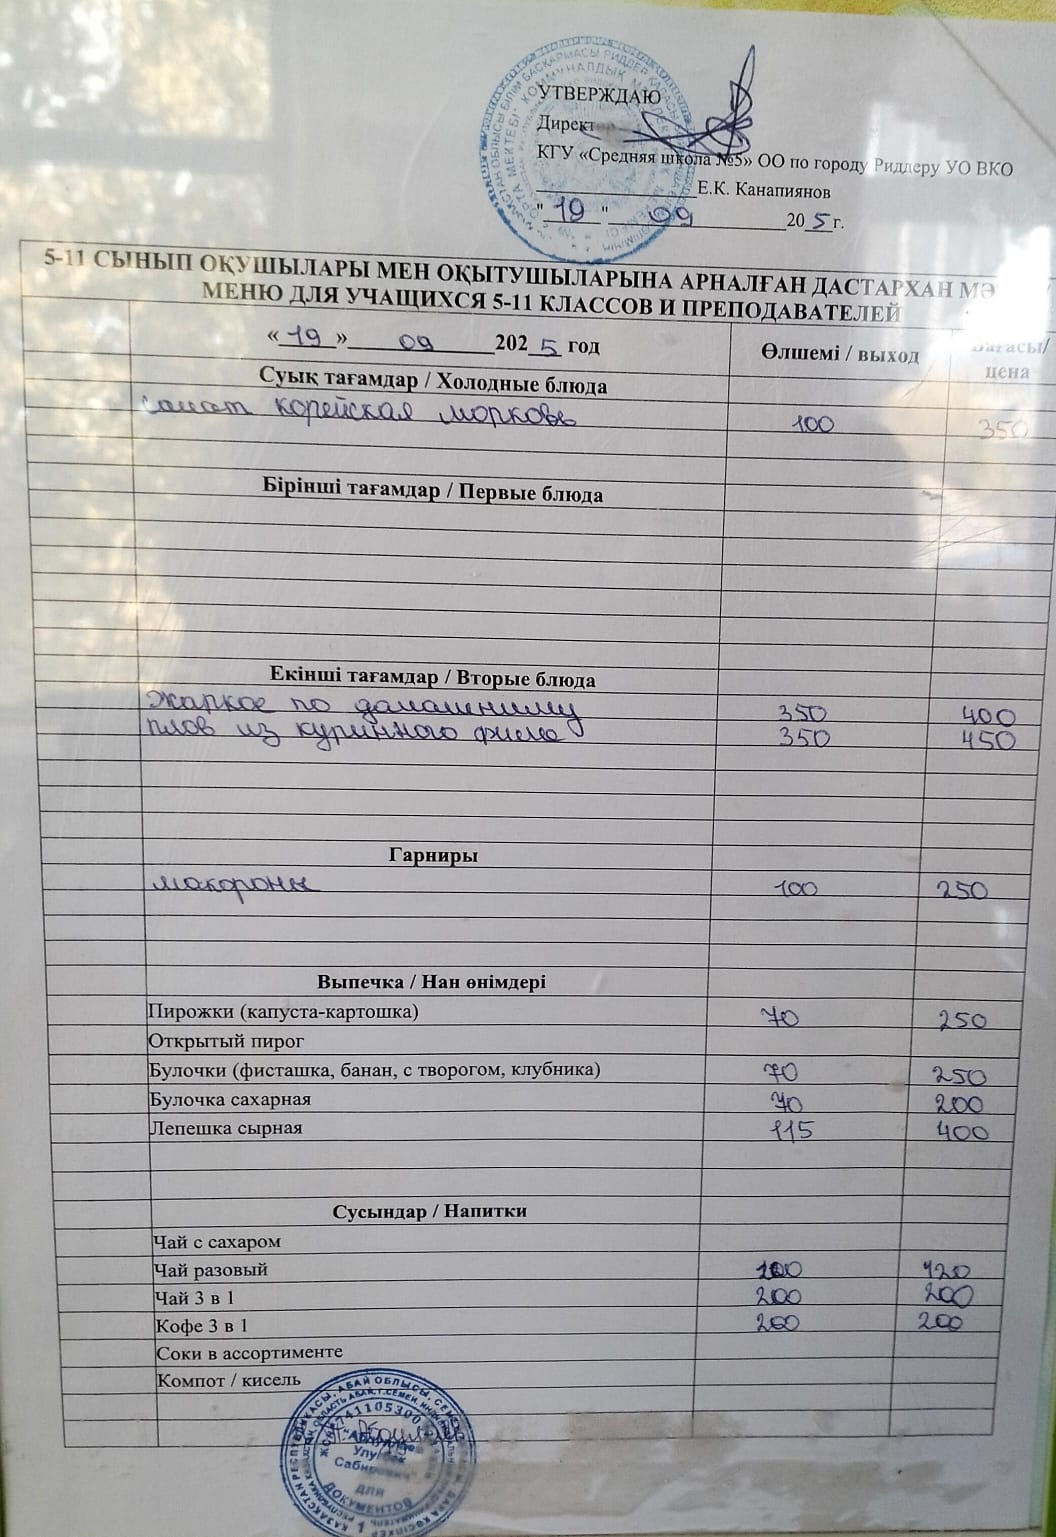 УТВЕРЖДАЮ
Директор
КГУ «Средняя школа №5» ОО по городу Риддеру УО ВКО
Е.К. Канапиянов
"19" 09 205г.
5-11 СЫНЫП ОҚУШЫЛАРЫ МЕН ОҚЫТУШЫЛАРЫНА АРНАЛҒАН ДАСТАРХАН
МЕНЮ ДЛЯ УЧАЩИХСЯ 5-11 КЛАССОВ И ПРЕПОДАВАТЕЛЕЙ
«19» 09 2025 год Өлшемі / выход Бағасы/ цена
Суық тағамдар / Холодные блюда
салат корейская морковь 100 350
Бірінші тағамдар / Первые блюда
Екінші тағамдар / Вторые блюда
жаркое по домашниму 350 400
плов из куринного филе 350 450
Гарниры
макороны 100 250
Выпечка / Нан өнімдері
Пирожки (капуста-картошка) 70 250
Открытый пирог
Булочки (фисташка, банан, с творогом, клубника) 70 250
Булочка сахарная 70 200
Лепешка сырная 115 400
Сусындар / Напитки
Чай с сахаром
Чай разовый 200 120
Чай 3 в 1 200 200
Кофе 3 в 1 200 200
Соки в ассортименте
Компот / кисель
ДЛЯ
ДОКУМЕНТОВ